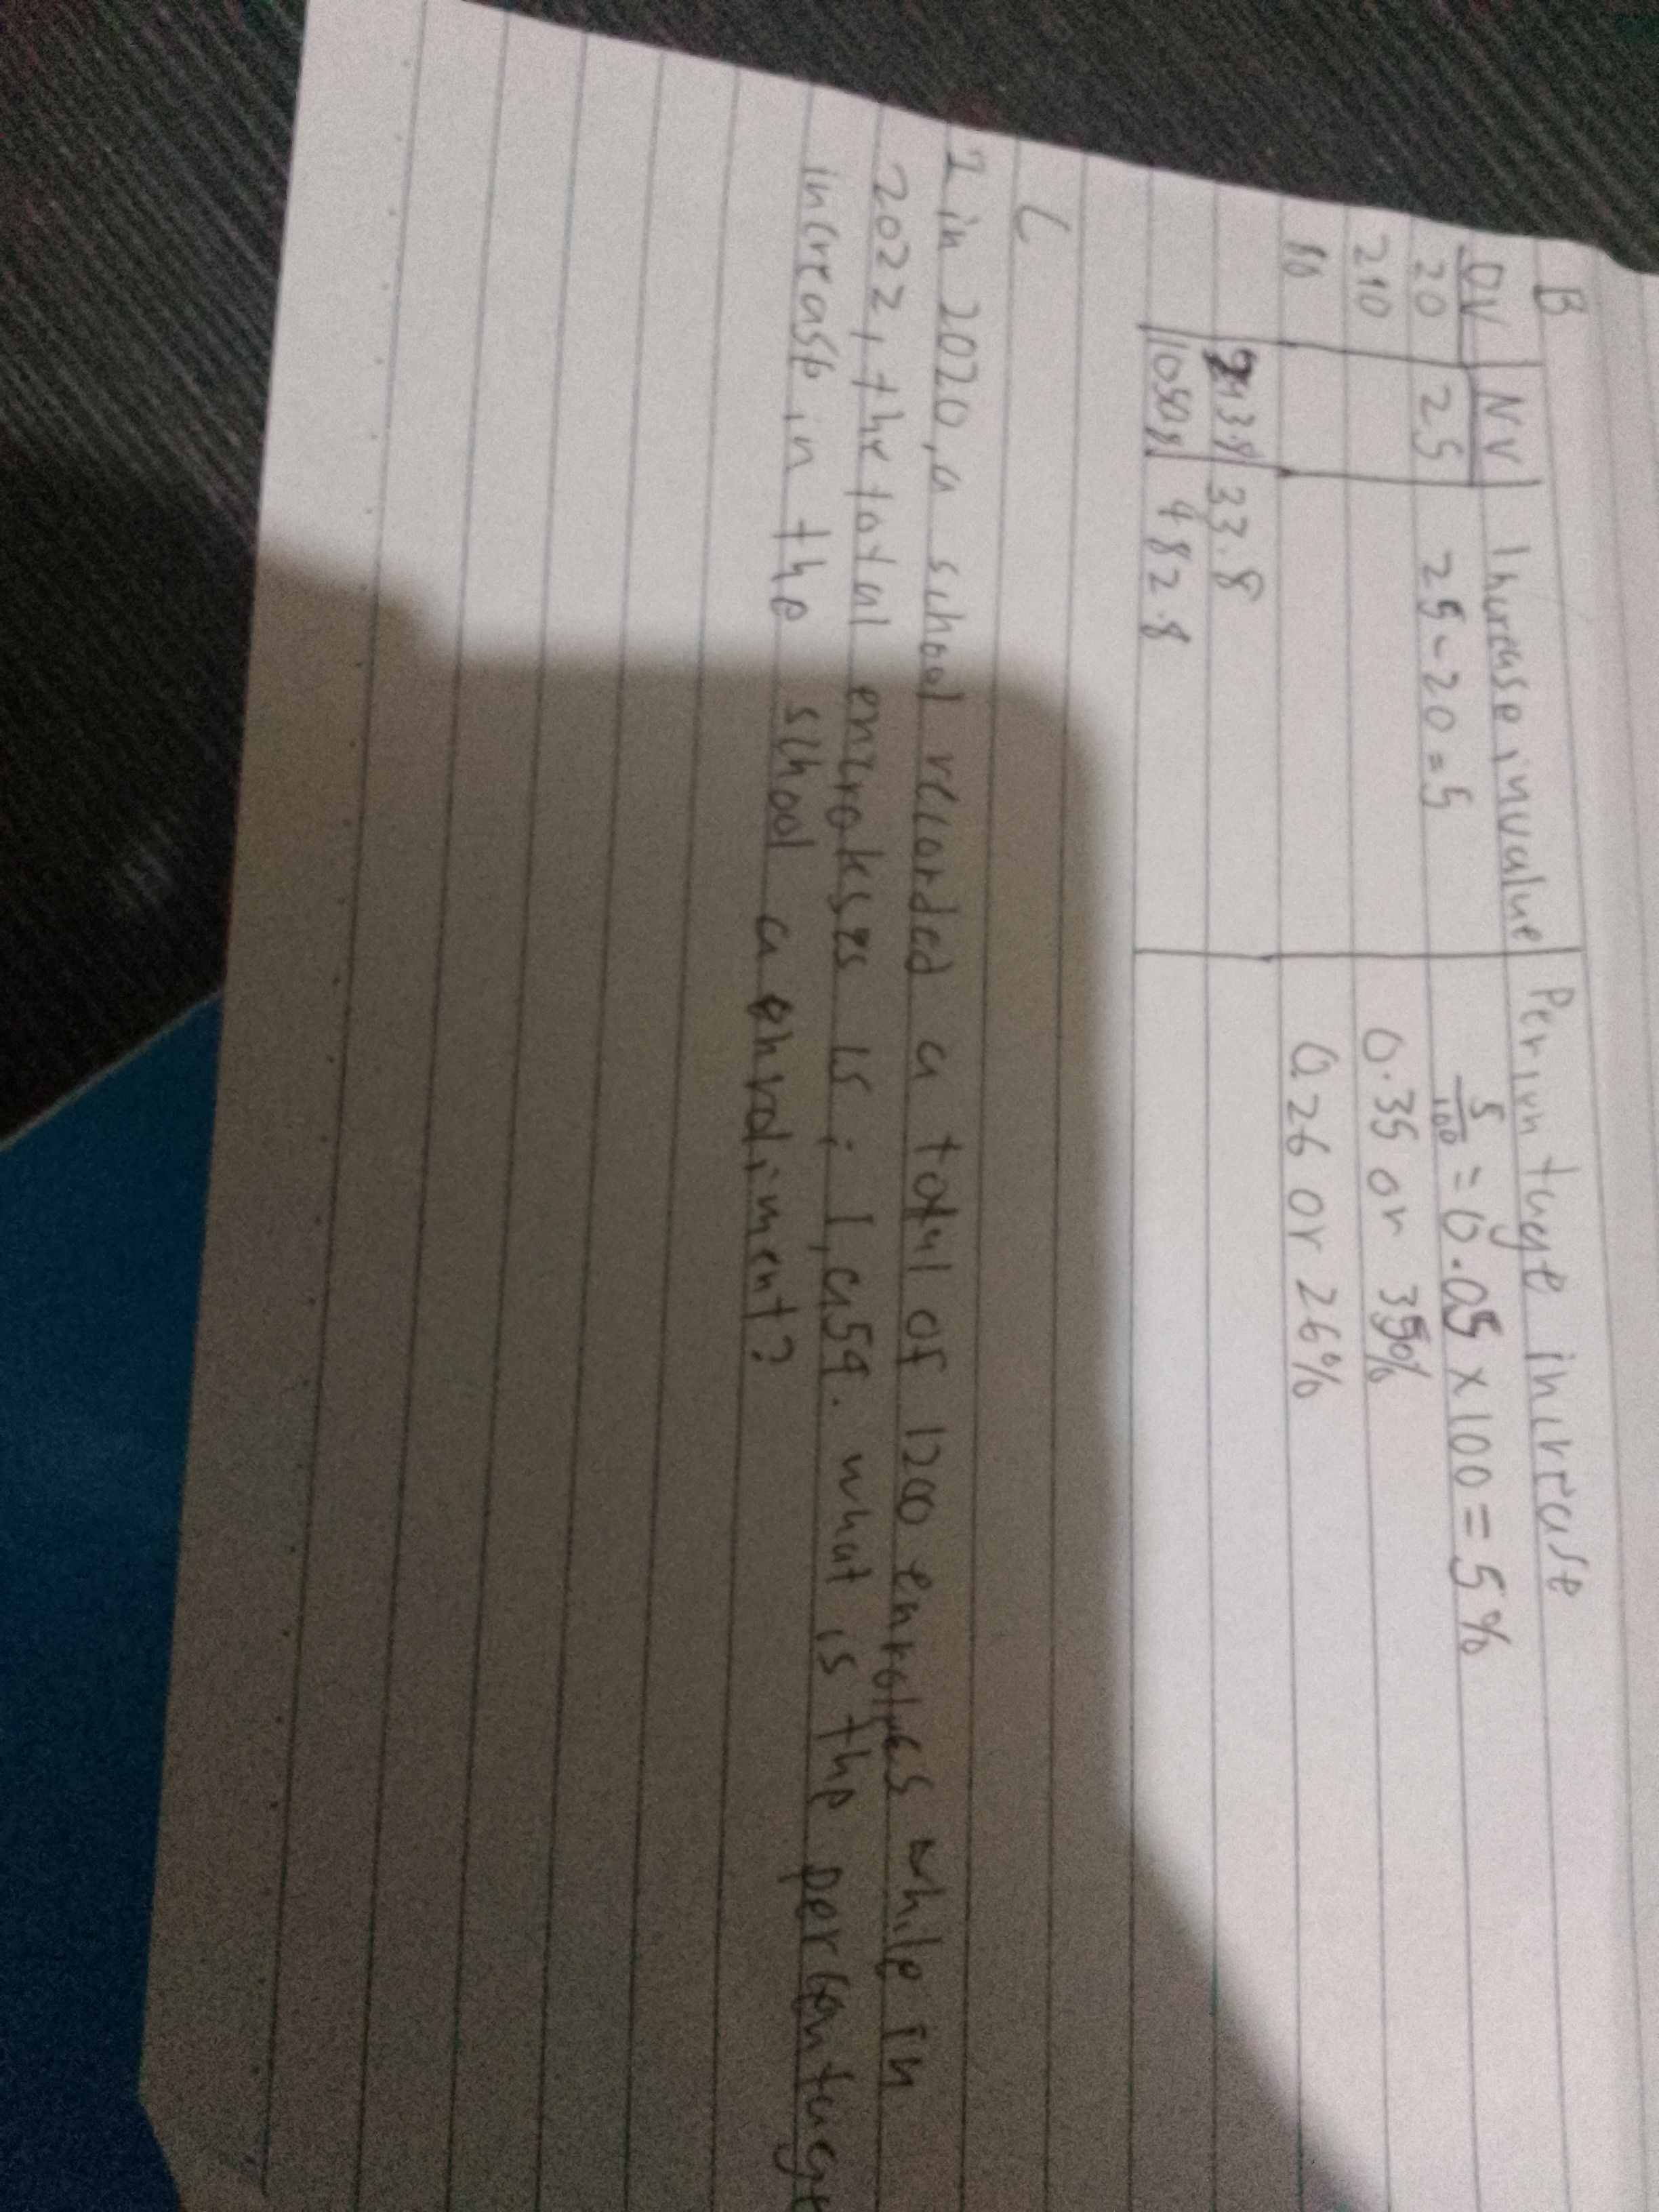 B
OV NV Increase in value Percentage increase
20 25 25-20=5 5/100 = 0.05 x 100 = 5%
210 0.35 or 35%
0.26 or 26%
33.8
1050.8 482.8
C
in 2020, a school recorded a total of 1200 enrolees while in
2022, the total is : 1, what is the percentage
increase in the school enrolment?